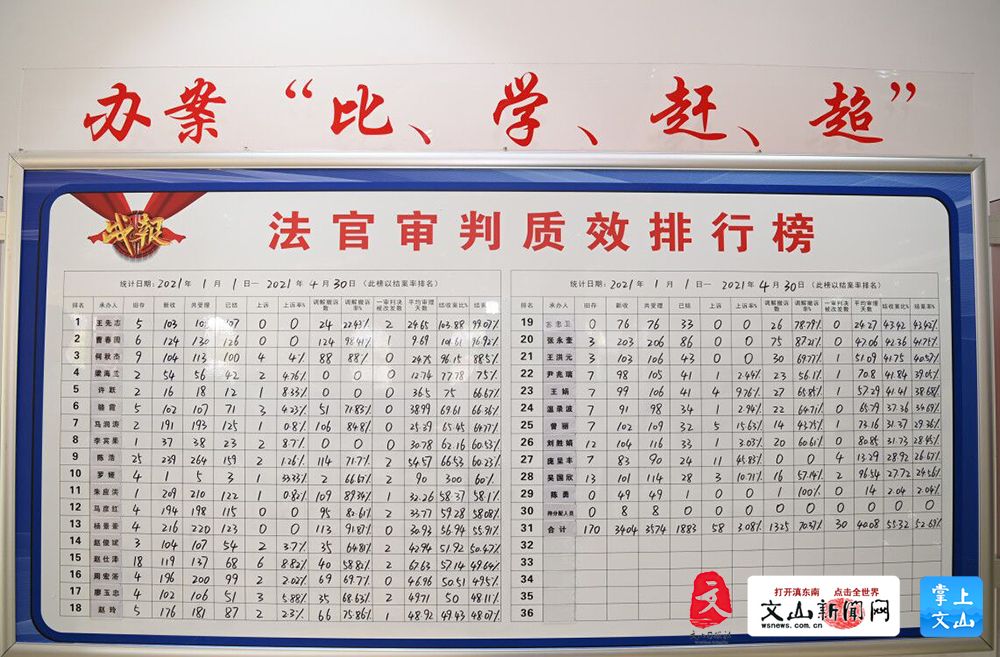 办案“比、学、赶、超”
战报
法官审判质效排行榜
统计日期：2021年 1月 1日— 2021年 4月 30日（此榜以结案率排名）
排名 承办人 旧存 新收 共受理 已结 上诉 上诉率% 调解撤诉数 调解撤诉率% 一审判决被改发数 平均审理天数 结收案比% 结案率%
1 王先志 5 103 107 0 0 24 22.43% 2 24.65 103.88 99.07%
2 曹春园 6 124 130 126 0 0 124 98.41% 1 9.69 101.61 96.92%
3 何秋杰 9 104 113 100 4 4% 88 88% 0 24.75 96.15 88.5%
4 梁海兰 2 54 56 42 2 4.76% 0 0 0 127.4 77.78 75%
5 许跃 2 16 18 12 1 8.33% 0 0 0 36.5 75 66.67%
6 骆霞 5 102 107 71 3 4.23% 51 71.83% 0 38.99 69.61 66.36%
7 马润涛 2 191 193 125 1 0.8% 106 84.8% 0 25.29 65.45 64.77%
8 李宾果 1 37 38 23 2 8.7% 0 0 0 30.78 62.16 60.53%
9 陈浩 25 239 264 159 2 1.26% 114 71.7% 2 54.57 66.53 60.23%
10 罗娅 4 1 5 3 1 33.33% 2 66.67% 2 90 300 60%
11 朱应洪 1 209 210 122 1 0.82% 109 89.34% 1 32.26 58.37 58.1%
12 马彦红 4 194 198 115 0 0 95 82.61% 2 33.77 59.28 58.08%
13 杨景蓥 4 216 220 123 0 0 113 91.87% 0 30.93 56.94 55.91%
14 赵俊斌 3 104 107 54 2 3.7% 35 64.81% 2 42.94 51.92 50.47%
15 赵仕泽 18 119 137 68 6 8.82% 40 58.82% 2 67.63 57.14 49.64%
16 周宏浙 4 196 200 99 2 2.02% 69 69.7% 0 46.96 50.51 49.5%
17 廖玉忠 4 102 106 51 3 5.88% 35 68.63% 2 49.71 50 48.11%
18 赵玲 5 176 181 87 2 2.3% 66 75.86% 1 48.92 49.43 48.07%
统计日期：2021年 1月 1日— 2021年 4月 30日（此榜以结案率排名）
排名 承办人 旧存 新收 共受理 已结 上诉 上诉率% 调解撤诉数 调解撤诉率% 一审判决被改发数 平均审理天数 结收案比% 结案率%
19 苏忠卫 0 76 76 33 0 0 26 78.79% 0 24.27 43.42 43.42%
20 张永奎 3 203 206 86 0 0 75 87.21% 0 47.06 42.36 41.75%
21 王洪元 3 103 106 43 0 0 30 69.77% 1 51.09 41.75 40.57%
22 尹兆瑞 7 98 105 41 1 2.44% 23 56.1% 2 70.8 41.84 39.05%
23 王娟 7 99 106 41 4 9.76% 27 65.85% 1 57.29 41.41 38.68%
24 温录波 7 91 98 34 1 2.94% 22 64.71% 0 65.79 37.36 34.69%
25 曾丽 7 102 109 32 5 15.63% 14 43.75% 1 73.16 31.37 29.36%
26 刘胜娟 12 104 116 33 1 3.03% 20 60.61% 0 80.85 31.73 28.45%
27 庞呈丰 7 83 90 24 11 45.83% 0 0 4 13.29 28.92 26.67%
28 吴国欣 13 101 114 28 3 10.71% 16 57.14% 2 96.54 27.72 24.56%
29 陈勇 0 49 49 1 0 0 1 100% 0 14 2.04 2.04%
30 待分配人员 0 8 8 0 0 0 0 0 0 0 0 0
31 合计 170 3404 3574 1883 58 3.08% 1325 70.37% 30 40.08 55.32 52.69%
32
33
34
35
36
文
打开滇东南 点击全世界
文山新闻网
wsnews.com.cn
掌上文山